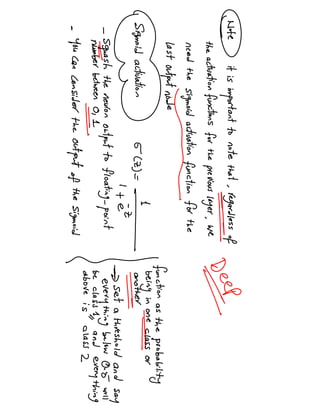 Note it is important to note that, regardless of
the activation functions for the previous layer, we
need the sigmoid activation function for the
last output node
Deep
Sigmoid activation σ(z) = 1 / 1 + e^-z
- Squash the neuron output to floating-point
number between 0, 1
- You can consider the output of the sigmoid
function as the probability
being in one class or
another
→ Set a threshold and say
everything below 0.5 will
be class 1, and everything
above is class 2